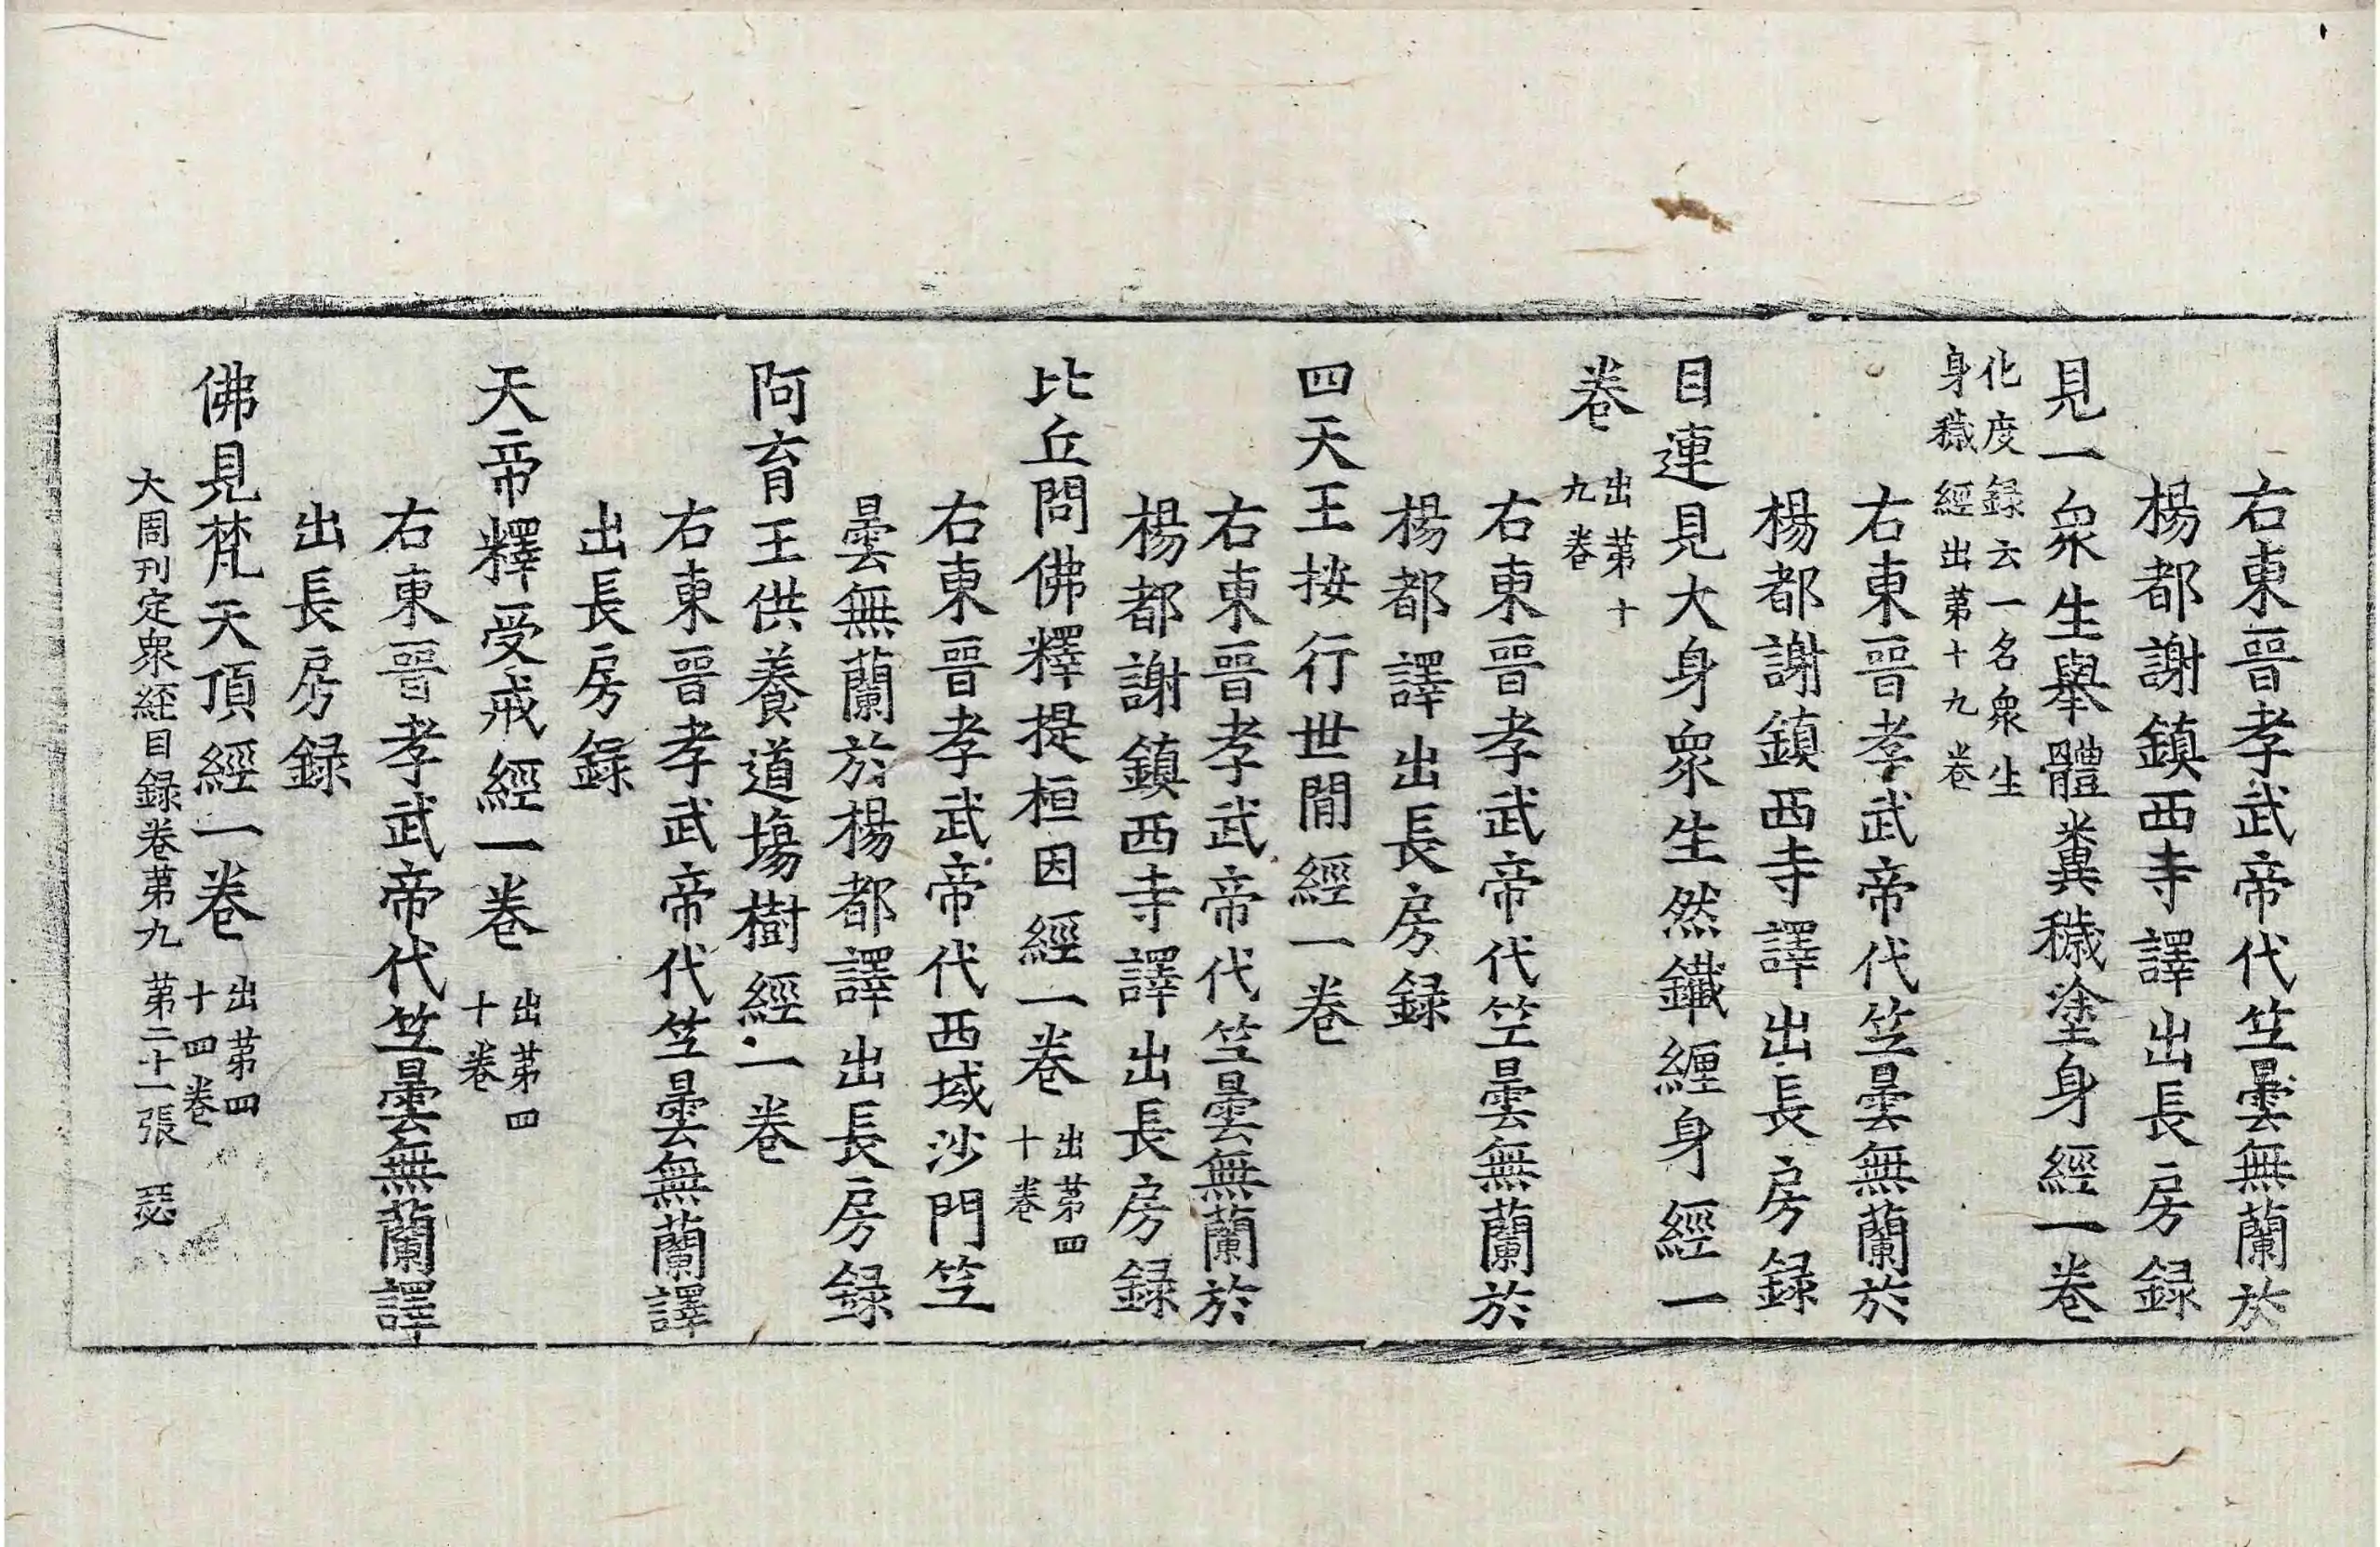 右東晉孝武帝代竺曇無蘭於
楊都謝鎮西寺譯出長房録
見一衆生舉體糞穢塗身經一卷
化度録云一名衆生
身穢經出苐十九卷
右東晉孝武帝代竺曇無蘭於
楊都謝鎮西寺譯出長房録
目連見大身衆生然鐵纏身經一
卷 出苐十
九卷
右東晉孝武帝代竺曇無蘭於
楊都譯出長房録
四天王按行世間經一卷
右東晉孝武帝代竺曇無蘭於
楊都謝鎮西寺譯出長房録
比丘問佛釋提桓因經一卷 出苐四
十卷
右東晉孝武帝代西域沙門竺
曇無蘭於楊都譯出長房録
阿育王供養道場樹經一卷
右東晉孝武帝代竺曇無蘭譯
出長房録
天帝釋受戒經一卷 出苐四
十卷
右東晉孝武帝代竺曇無蘭譯
出長房録
佛見梵天頂經一卷 出苐四
十四卷
大周刊定衆経目録卷苐九 苐二十一張 瑟